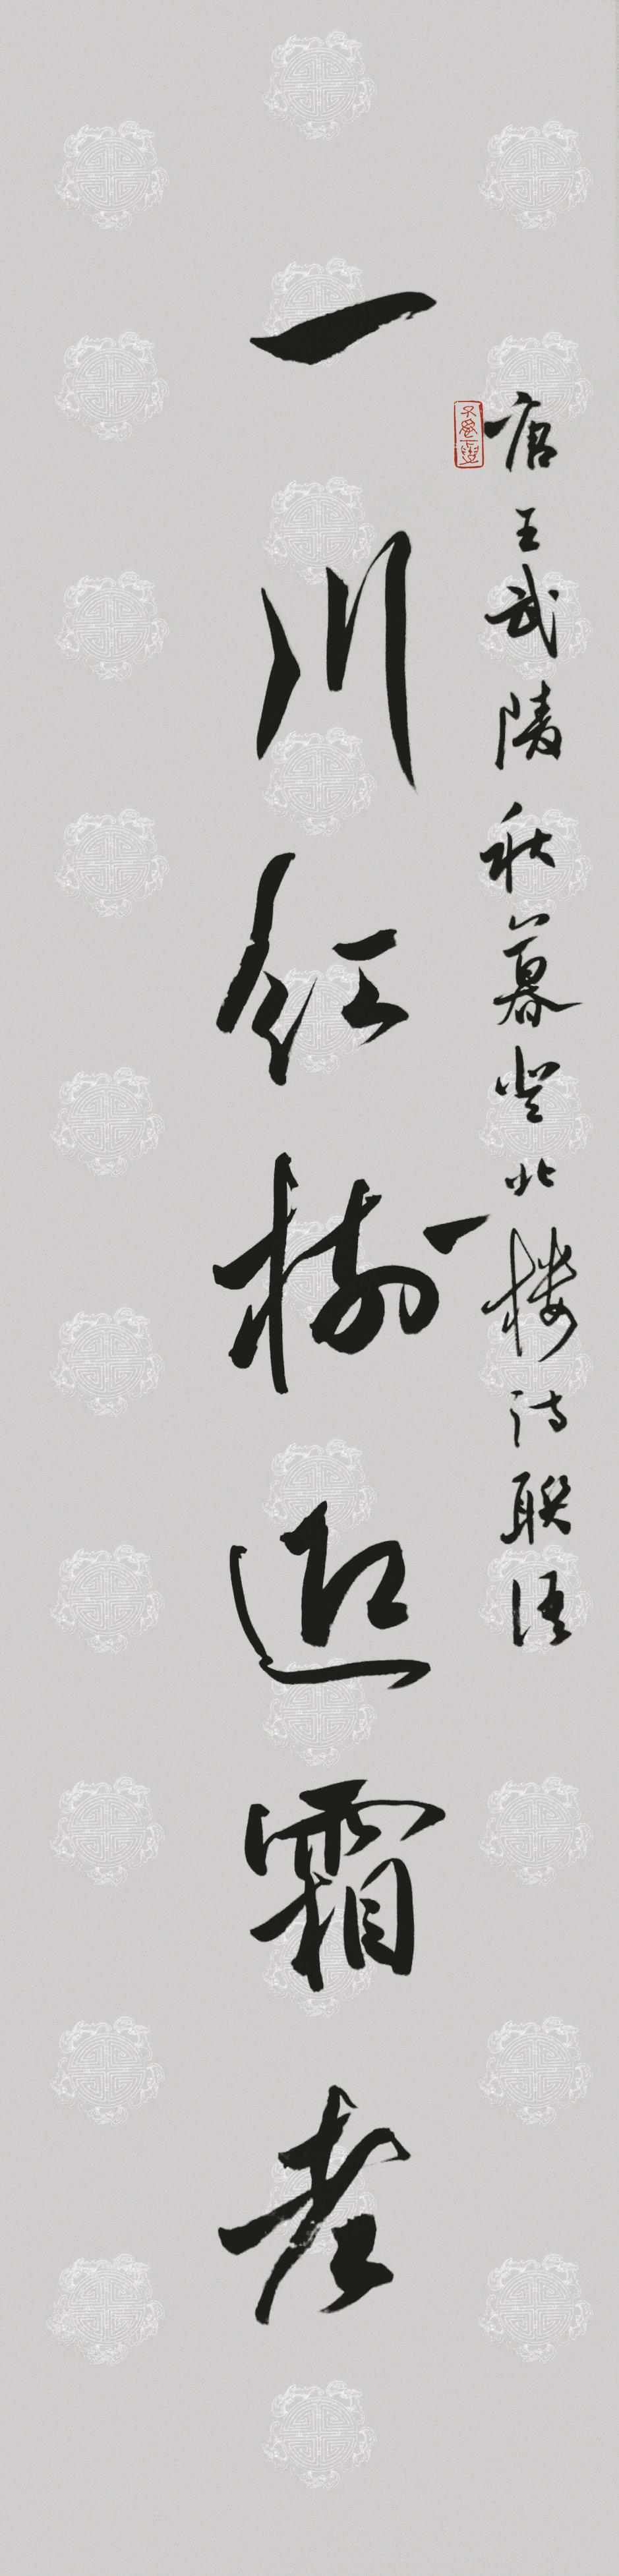 唐王武陵秋暮登北楼诗联语
一川红树迎霜老